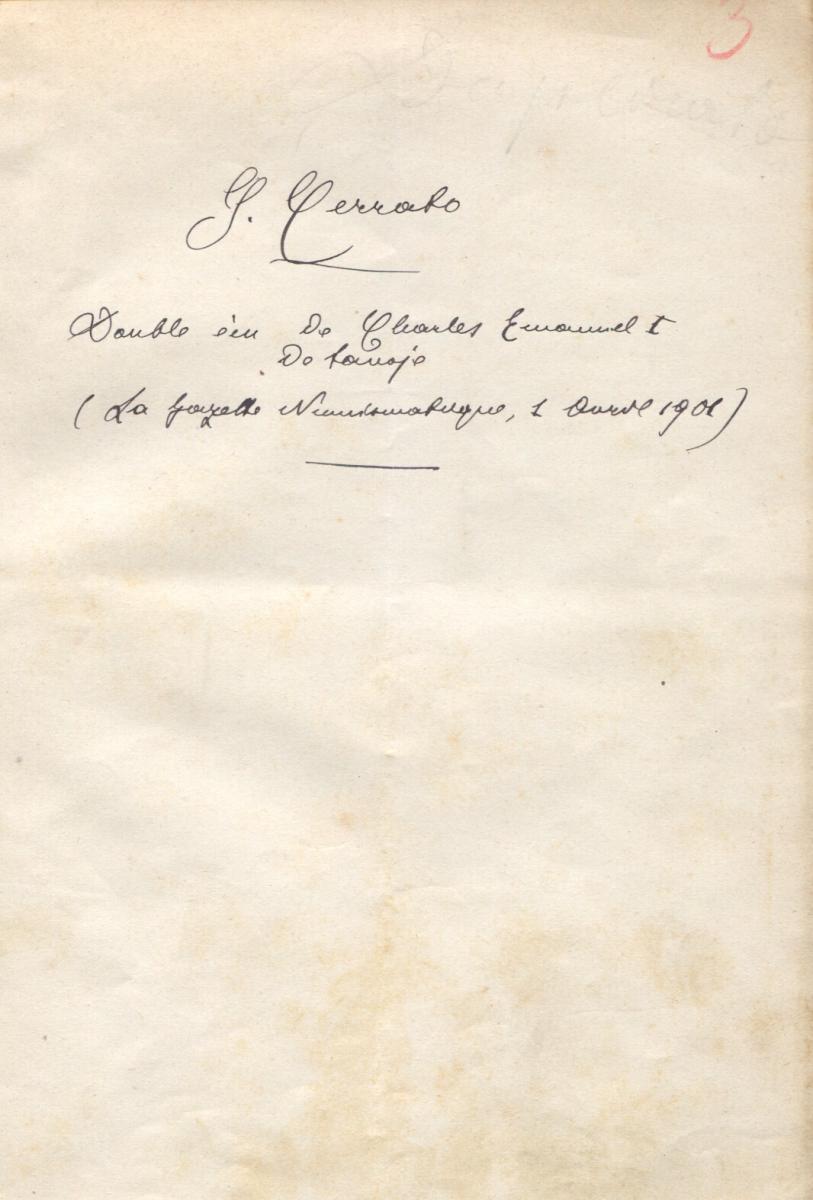 3
G. Cerrato
Double écu de Charles Emanuel I
de Savoje
(La Gazette Numismatique, 1 Avril 1901)